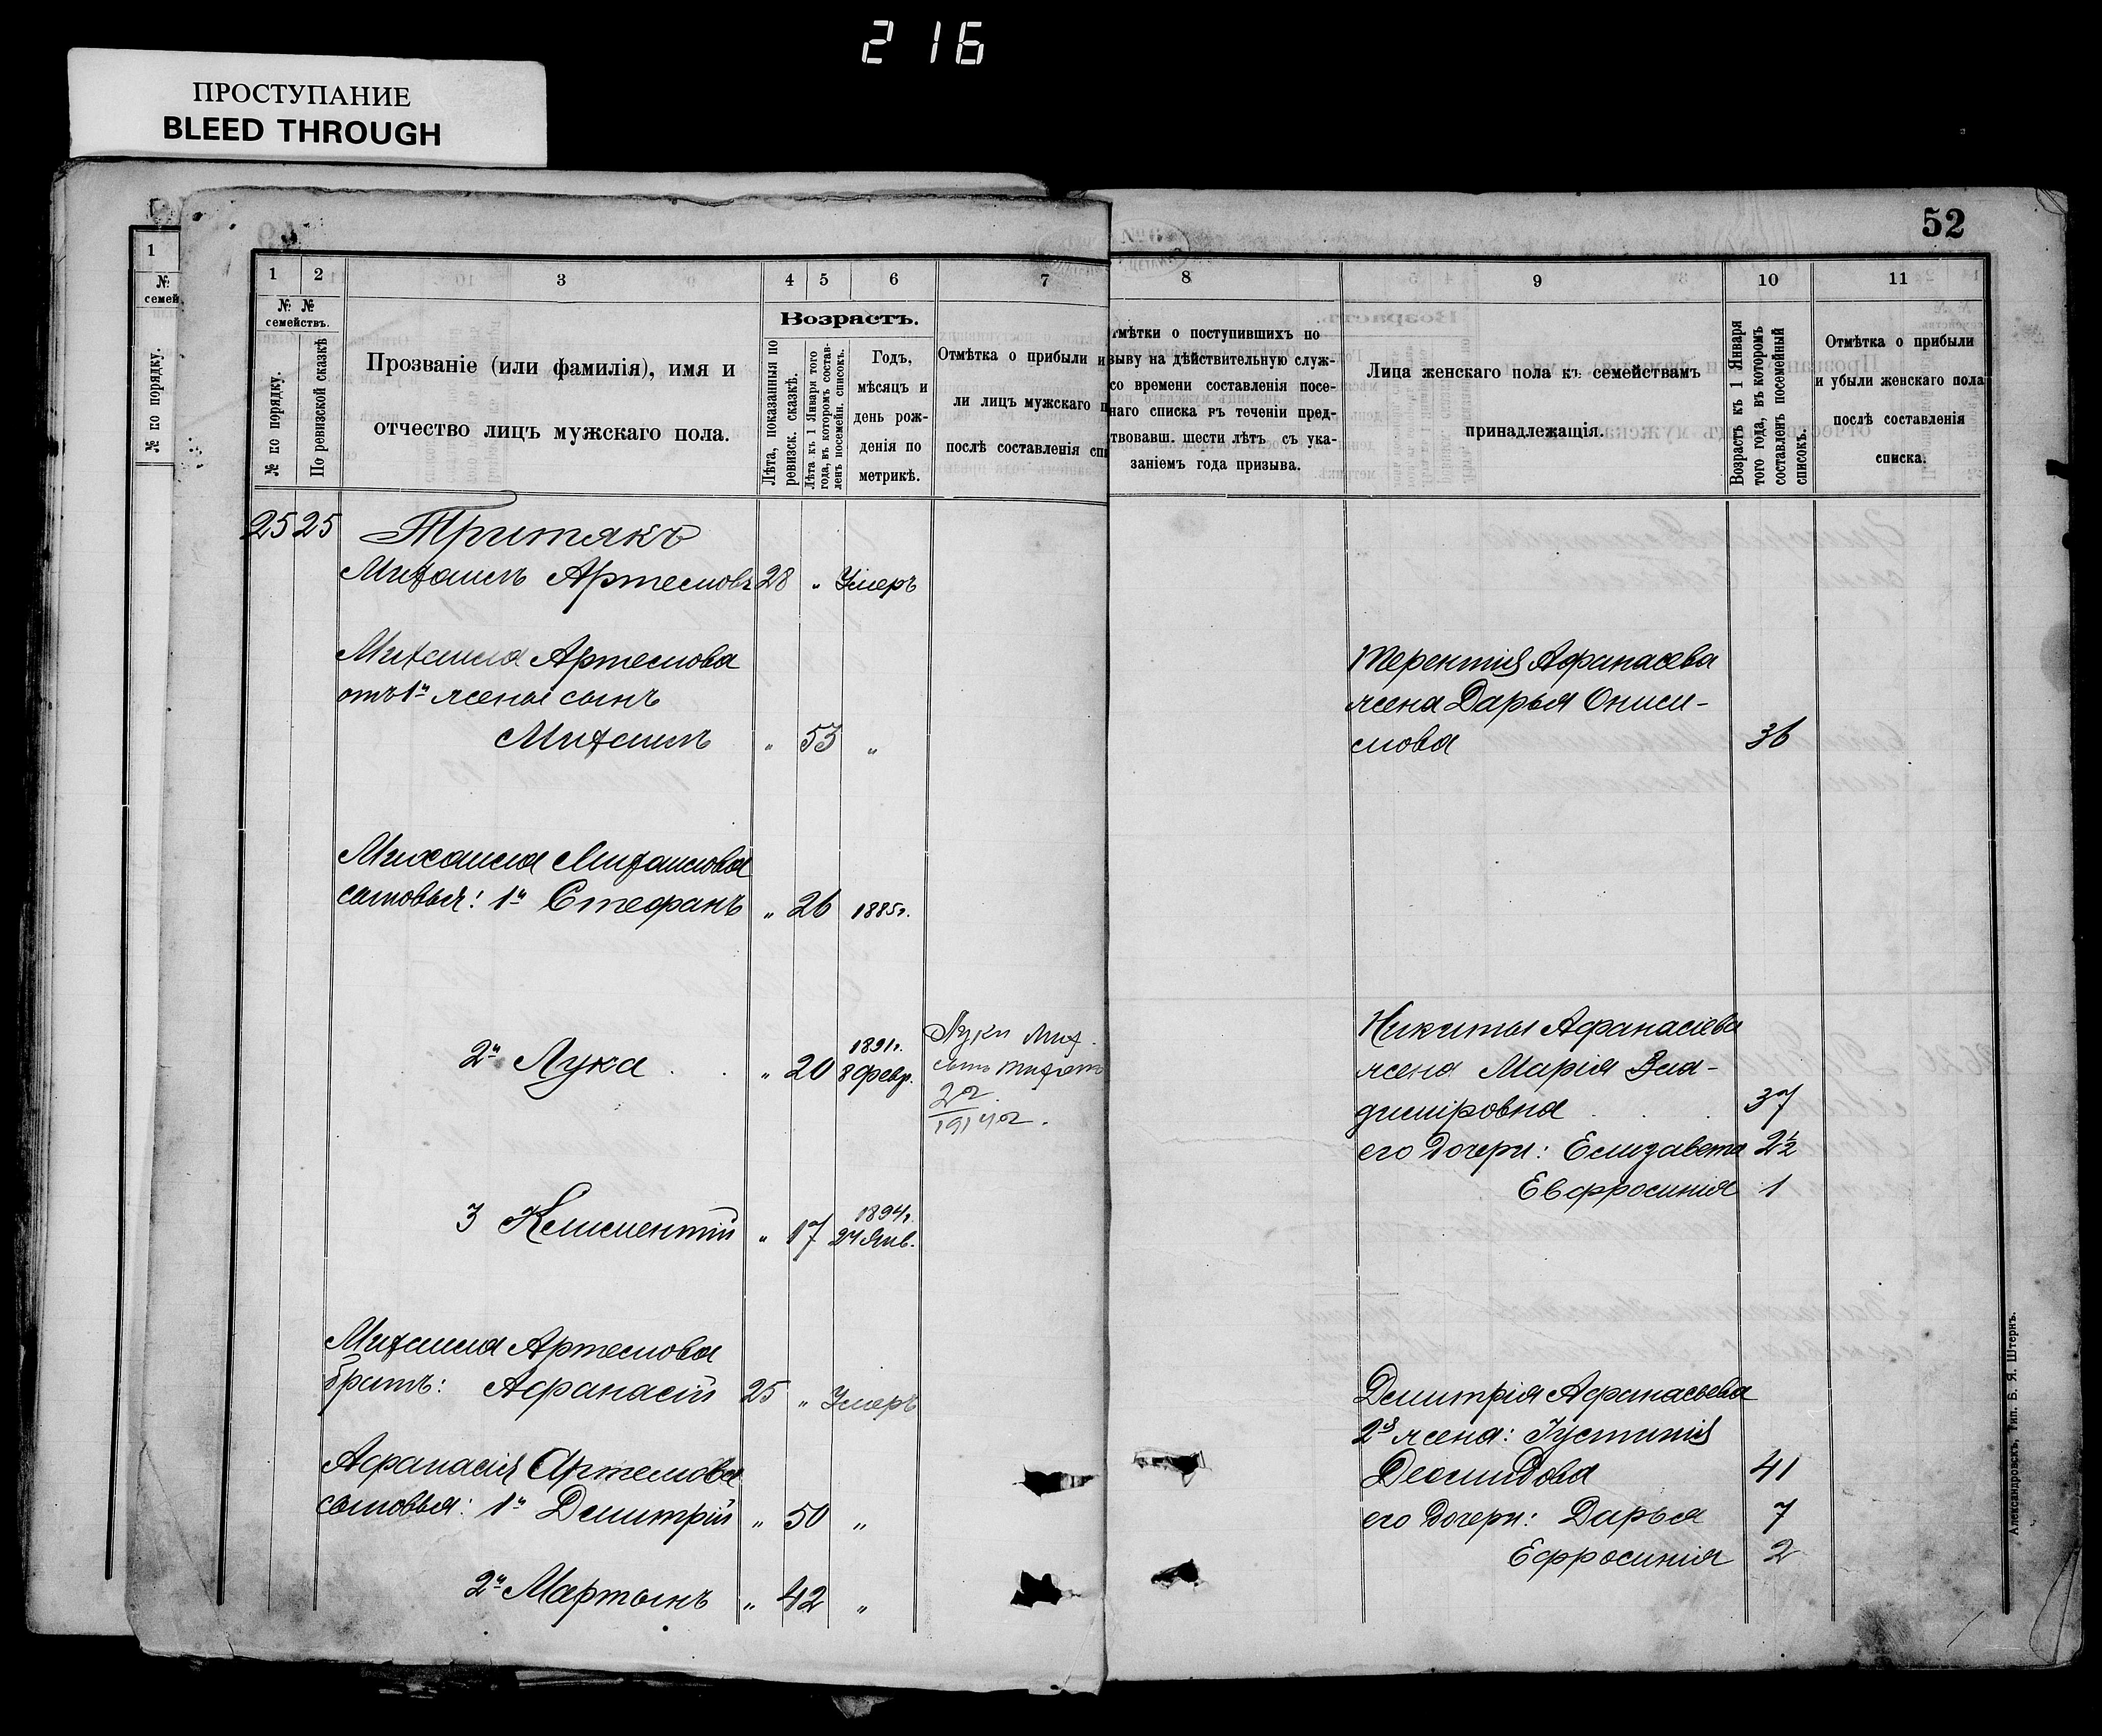 216
ПРОСТУПАНИЕ
BLEED THROUGH
1
№
семей
№ по порядку.
1 2 3 4 5 6 7
№ №
семействъ.
№ по порядку.
По ревизской сказкѣ
Прозваніе (или фамилія), имя и
отчество лицъ мужскаго пола.
Возрастъ.
Лѣта, показанныя по
ревизск. сказкѣ.
Лѣта къ 1 Января того
года, въ которомъ состав-
ленъ посемейн. списокъ.
Годъ,
мѣсяцъ и
день рож-
денія по
метрикѣ.
Отмѣтка о прибыли и
ли лицъ мужскаго п
послѣ составленія спи
25 25 Тритякъ
Михаилъ Артемовъ 28 „ Умеръ
Михаила Артемова
отъ 1й жены сынъ
Михаилъ „ 53 „
Михаила Михаилова
сыновья: 1й Стефанъ „ 26 1885г.
2й Лука . . „ 20 1891г.
8 Февр.
Луки Мих.
сынъ
2г.
1914г.
3 Климентій „ 17 1894г.
24 Янв.
Михаила Артемова
братъ: Афанасій 25 „ Умеръ
Афанасія Артемова
сыновья: 1й Дмитрій „ 50 „
2й Мартынъ „ 42 „
52
8 9 10 11
тмѣтки о поступившихъ по
зыву на дѣйствительную служ-
со времени составленія посе-
наго списка въ теченіи пред-
твовавш. шести лѣтъ съ ука-
заніемъ года призыва.
Лица женскаго пола къ семействамъ
принадлежащія.
Возрастъ къ 1 Января
того года, въ которомъ
составленъ посемейный
списокъ.
Отмѣтка о прибыли
и убыли женскаго пола
послѣ составленія
списка.
Терентія Афанасева
жена Дарья Ониси-
мова 36
Никиты Афанасіева
жена Марія Вла-
диміровна . . . 37
его дочери: Елизавета 2½
Евфросинія 1
Дмитрія Афанасьева
2я жена: Іустинія
Деомидова 41
его дочери: Дарья 7
Ефросинія 2
Александровскъ, Тип. Б. Я. Штернъ.